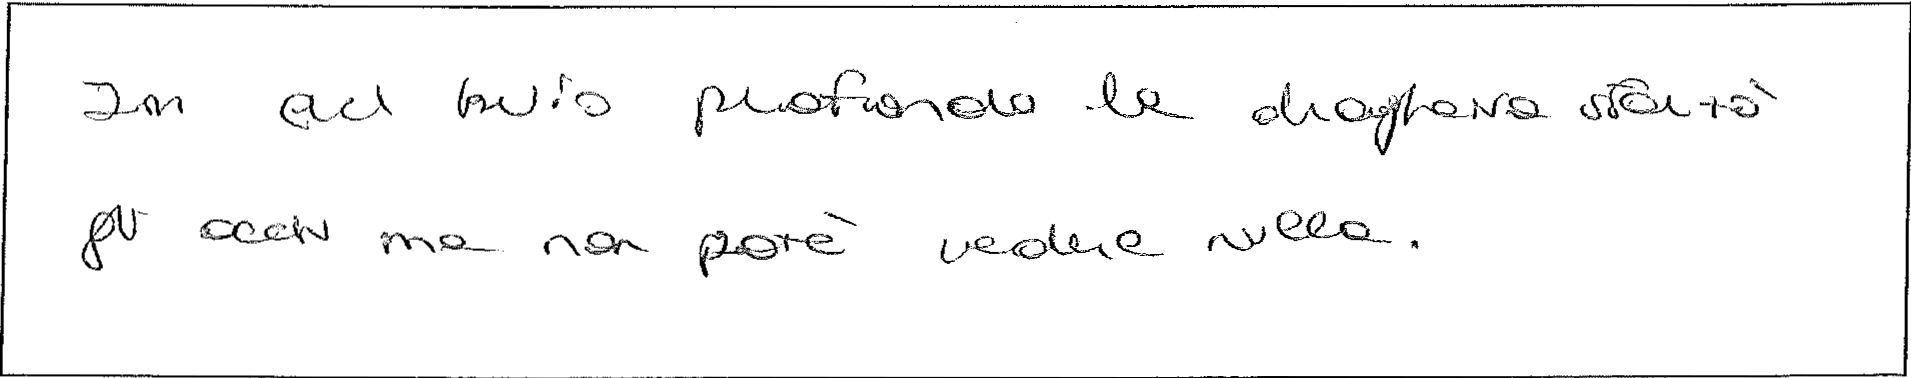 In quel buio profondo la draghessa sbarrò
gli occhi ma non poté vedere nulla.